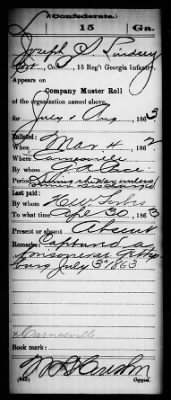 (Confederate.)
15 Ga.
Joseph S. Lindsey
, Co. , 15 Reg't Georgia Infantry.
Appears on
Company Muster Roll
of the organization named above,
for July & Aug, 1863.
Enlisted:
When Mar 4, 186
Where Carnesville
By whom
Period
Last paid:
By whom
To what time Apr 30, 1863
Present or absent Absent
Remarks: Captured a
prisoner Gettys
burg July 3 1863
Carnesville
Book mark:
(642) Copyist.